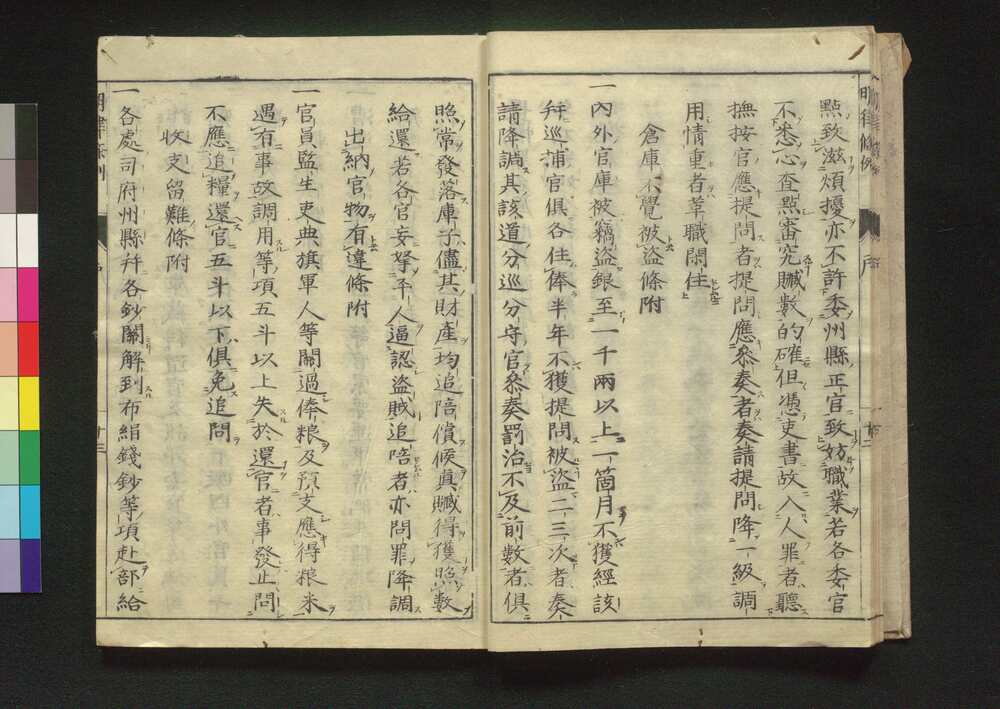 點致滋煩擾亦不許委州縣正官致妨職業若各委官
不悉心查點審究贓數的確但憑吏書故入人罪者聽
撫按官應提問者提問應參奏者奏請提問降一級調
用情重者革職閑住
倉庫不覺被盜條附
一內外官庫被竊盜銀至一千兩以上一箇月不獲經該
幷巡捕官俱各住俸半年不獲提問被盜二三次者奏
請降調其該道分巡分守官參奏罰治不及前數者俱
照常發落庫子儘其財產均追陪償候真贓得獲照數
給還若各官妄拏平人逼認盜賊追陪者亦問罪降調
出納官物有違條附
一官員監生吏典旗軍人等關過俸粮及預支應得粮米
遇有事故調用等項五斗以上失於還官者事發止問
不應追糧還官五斗以下俱免追問
收支留難條附
一各處司府州縣幷各鈔關解到布絹錢鈔等項赴部給